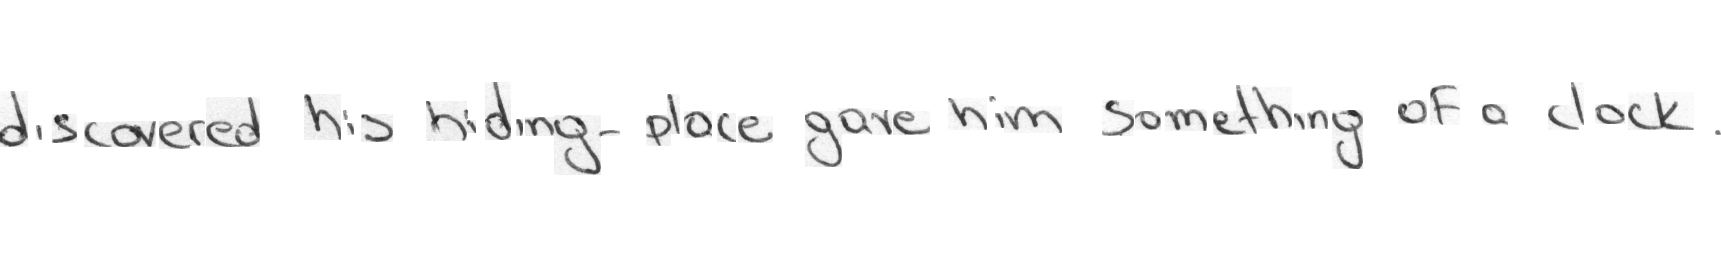 discovered his hiding-place gave him something of a clock.